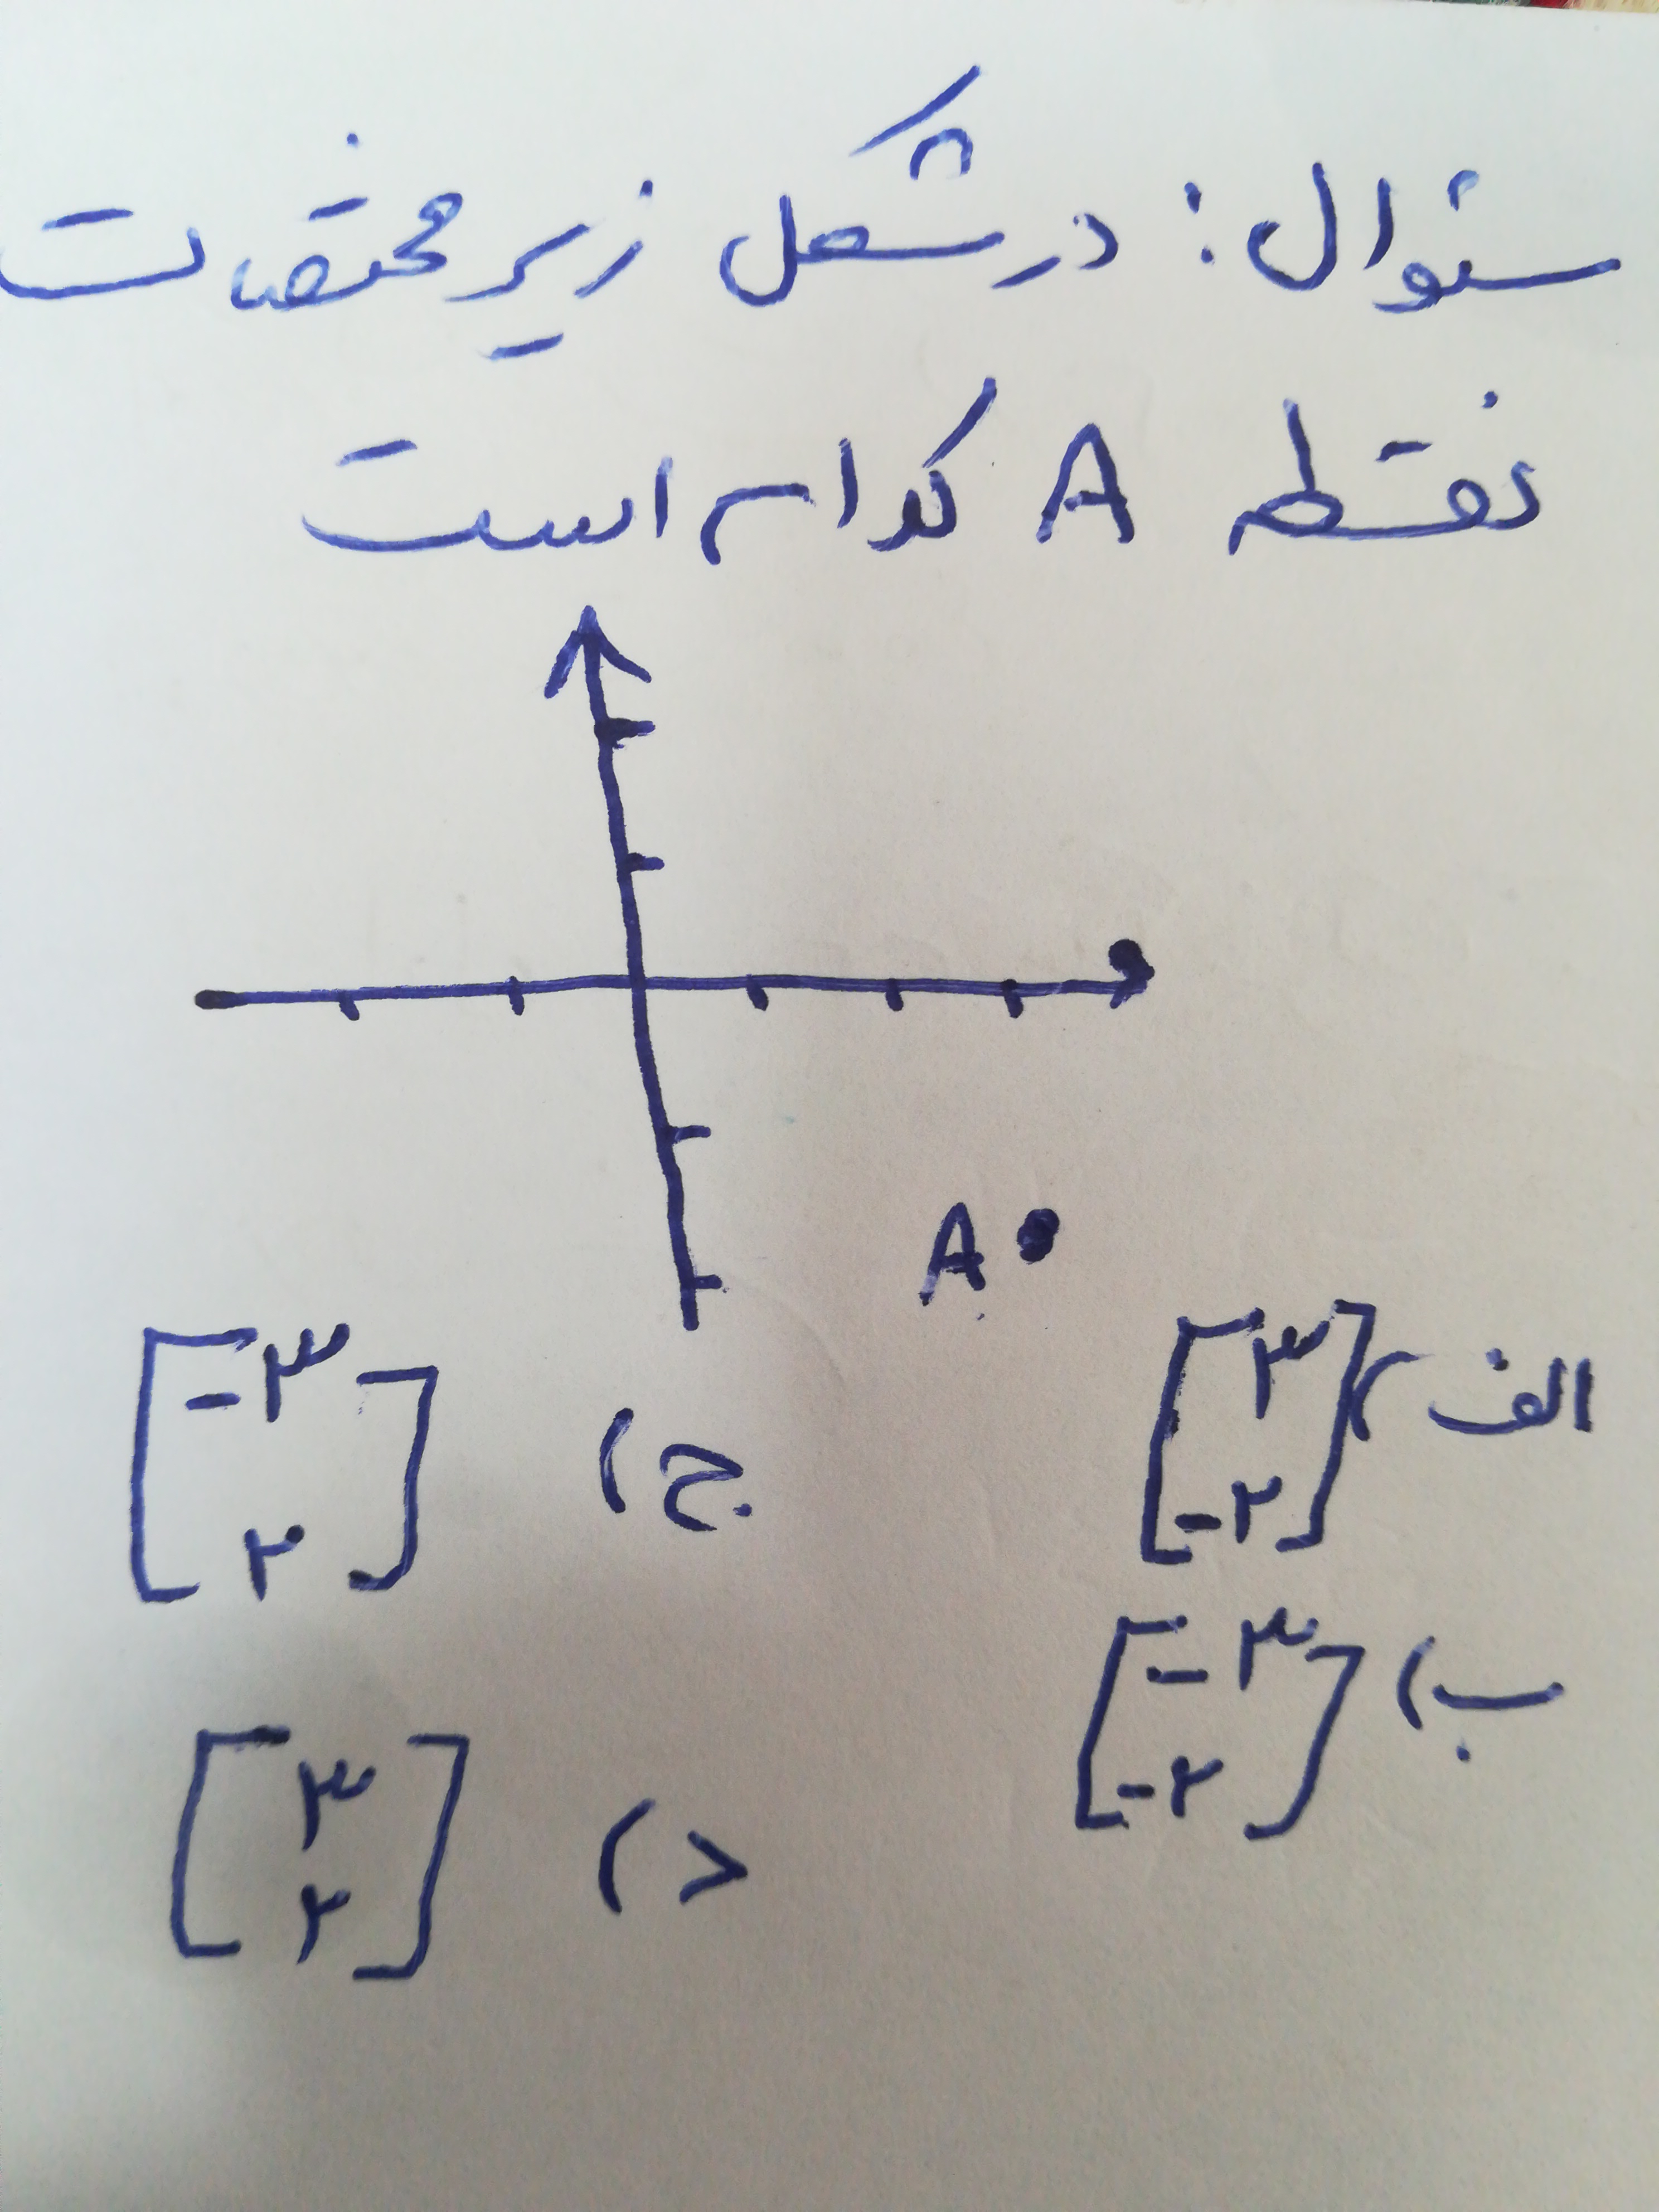 سئوال: در شکل زیر مختصات
نقطه A کدام است
A
الف) [۳
-۲]
ج) [-۳
۲]
ب) [-۳
-۲]
د) [۳
۲]